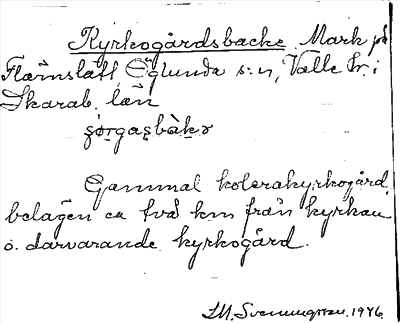 Kyrkogårdsbacke Mark på
Flämslätt, Öglunda s:n, Valle hr. i
Skarab. län
şǫrgaşbàkə
Gammal kolerakyrkogård,
belägen ca två km från kyrkan
o. därvarande kyrkogård.
I.M. Svenungsson. 1946.